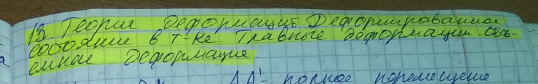 13. Теории деформаций. Деформированное
состояние в т-ке. Главные деформации. Объ-
емная деформация.
ΔΔ' - полное перемещение